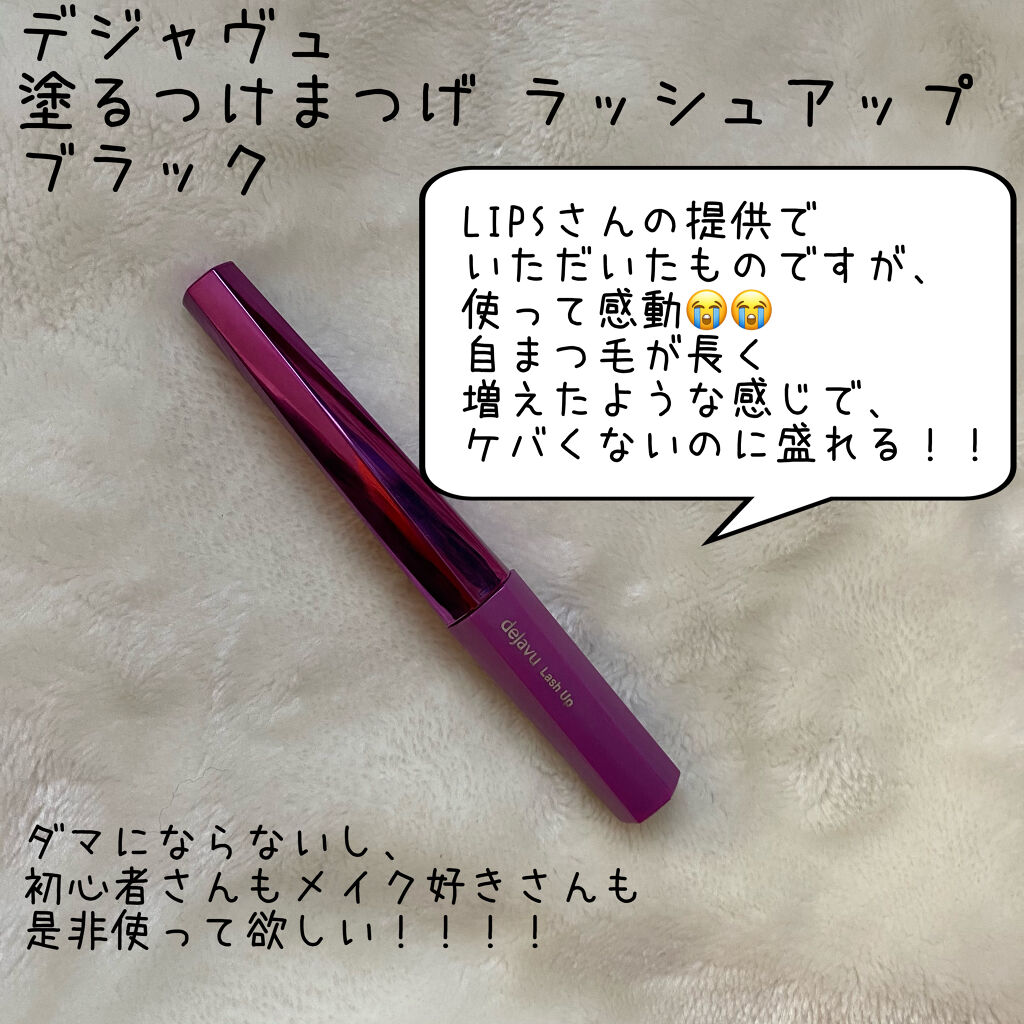 デジャヴュ
塗るつけまつげ ラッシュアップ
ブラック
LIPSさんの提供で
いただいたものですが、
使って感動😭😭
自まつ毛が長く
増えたような感じで、
ケバくないのに盛れる！！
dejavu Lash Up
ダマにならないし、
初心者さんもメイク好きさんも
是非使って欲しい！！！！